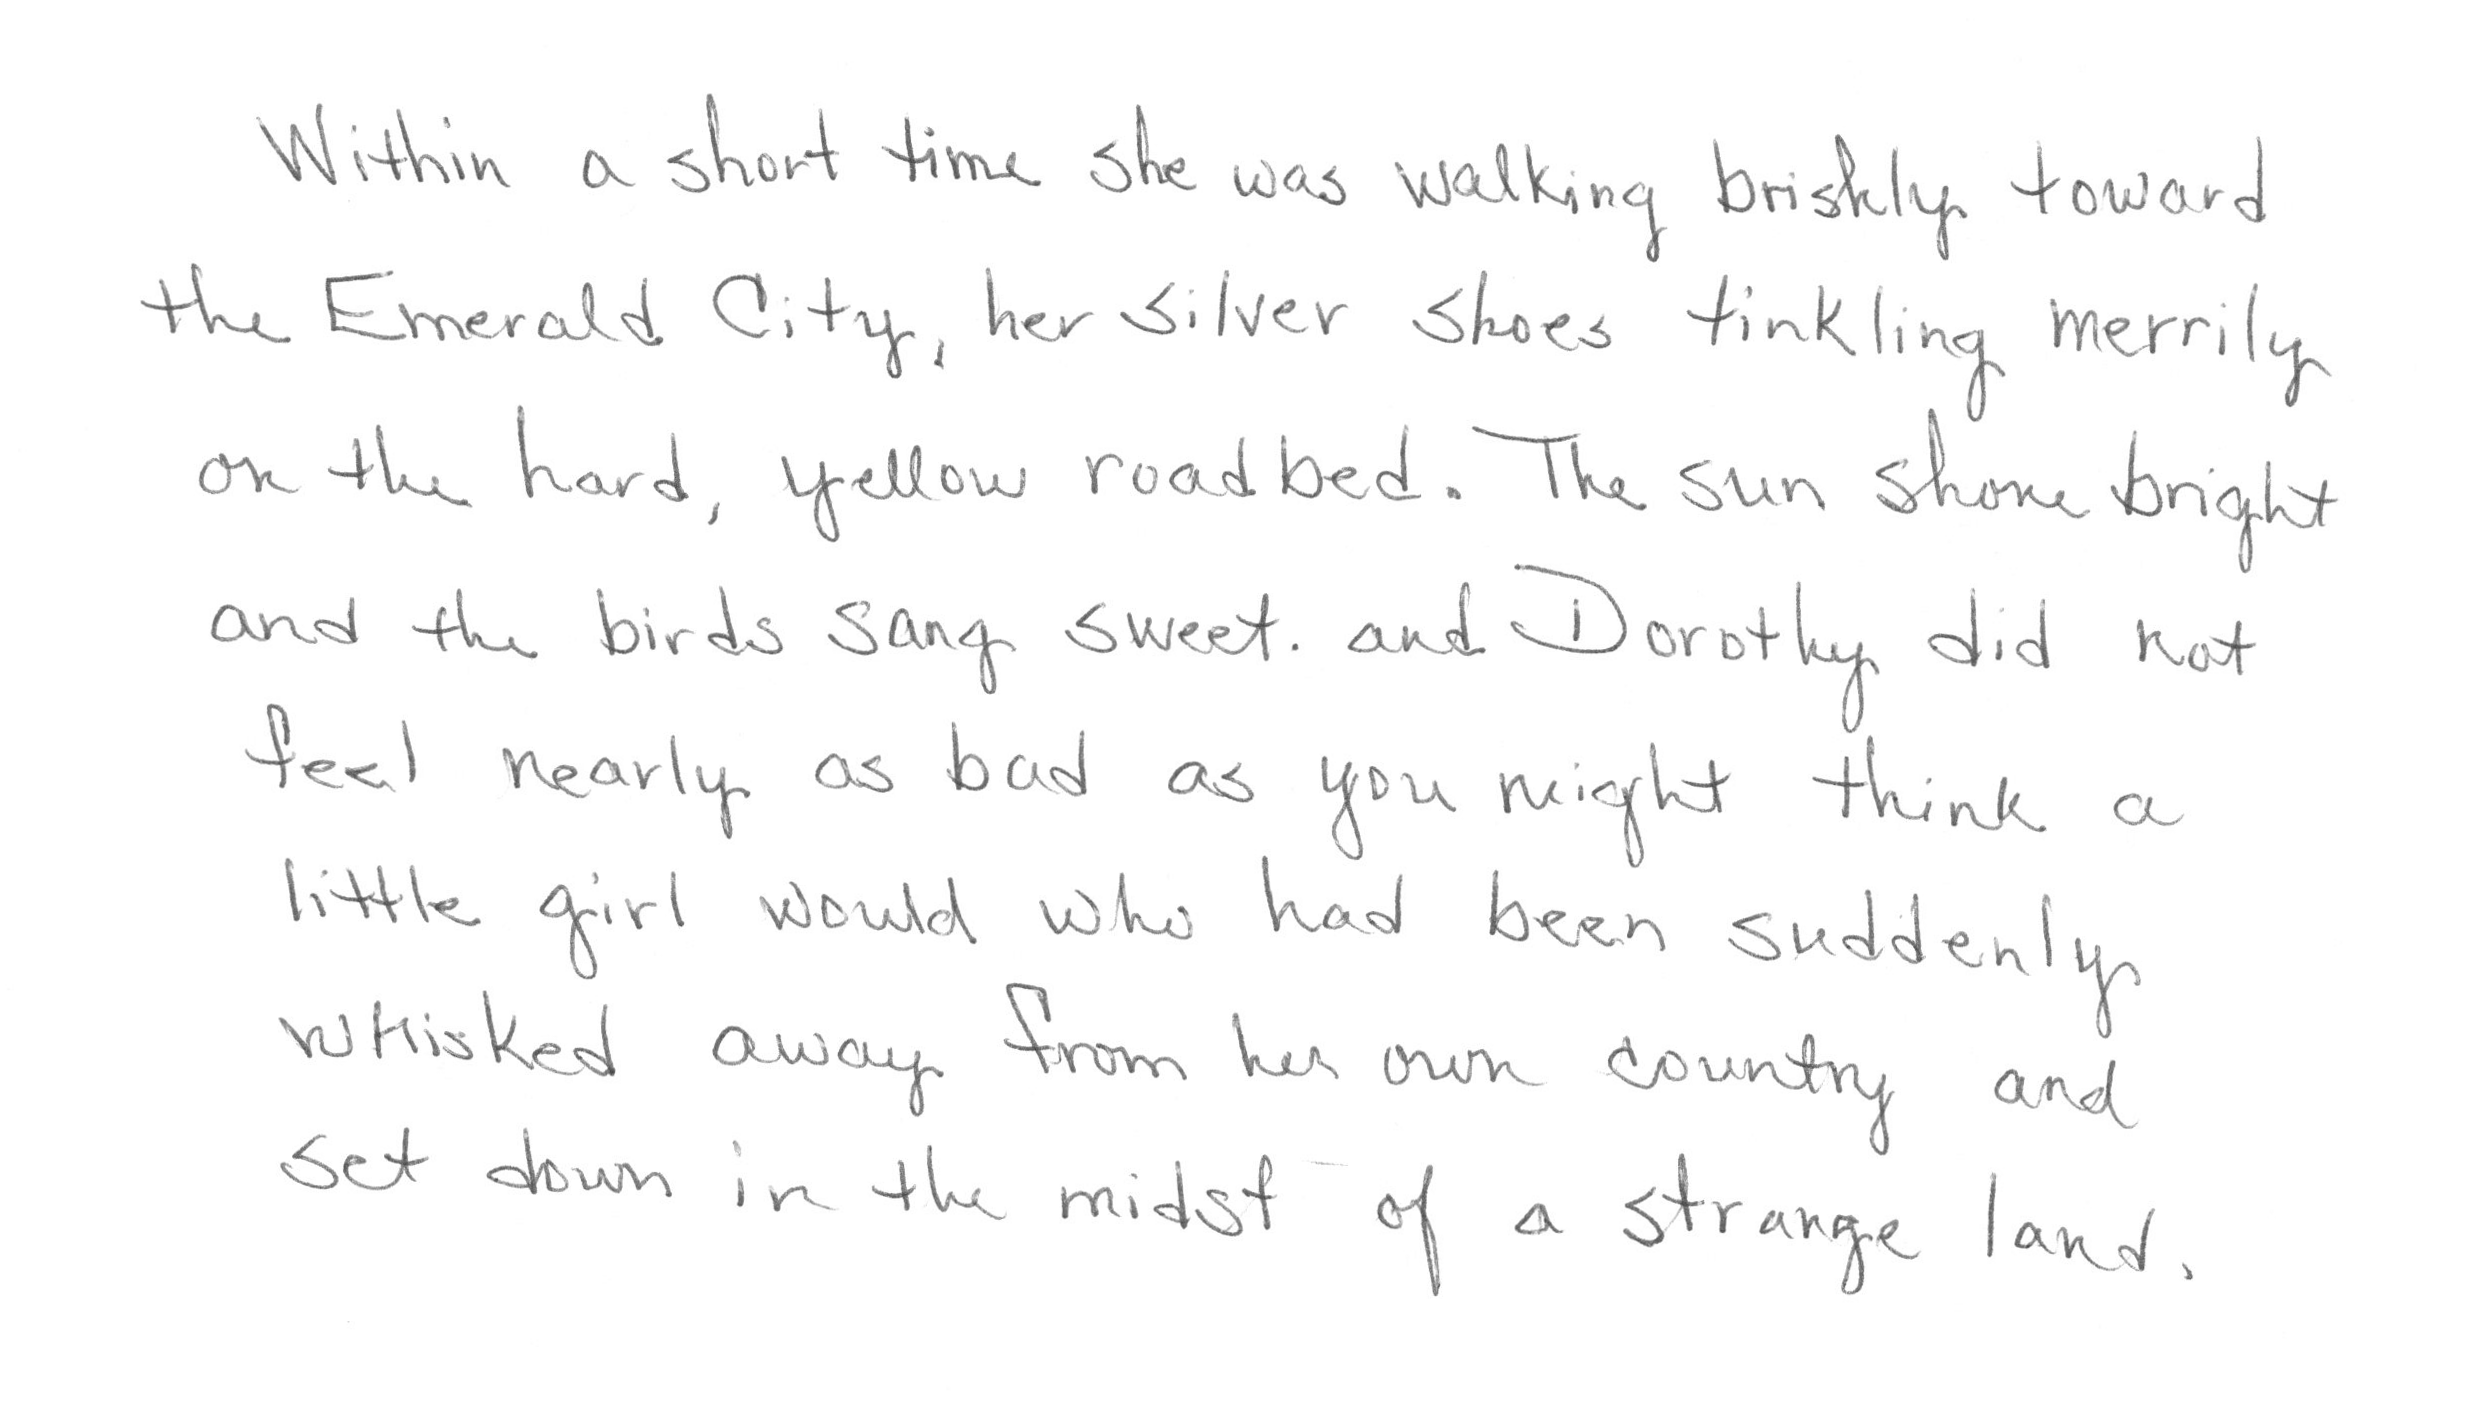 Within a short time she was walking briskly toward
the Emerald City, her silver shoes tinkling merrily
on the hard, yellow roadbed. The sun shone bright
and the birds sang sweet. and Dorothy did not
feel nearly as bad as you might think a
little girl would who had been suddenly
whisked away from her own country and
set down in the midst of a strange land.